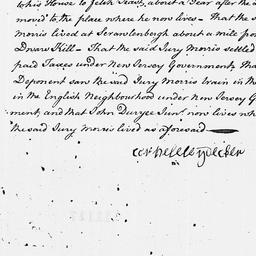 to his House to fetch Seats, about a Year after the
moved to the place where he now lives - That the s
morris lived at Seranlenbergh about a mile
Dwars Kill - That the said Jury Morris settled
paid Taxes under New Jersey Government, tha
Deponent saw the said Jury Morris train in th
in the English Neighbourhood under New Jersey G
ment, and that John Duryee Junr. now lives wh
the said Jury Morris lived as aforesaid